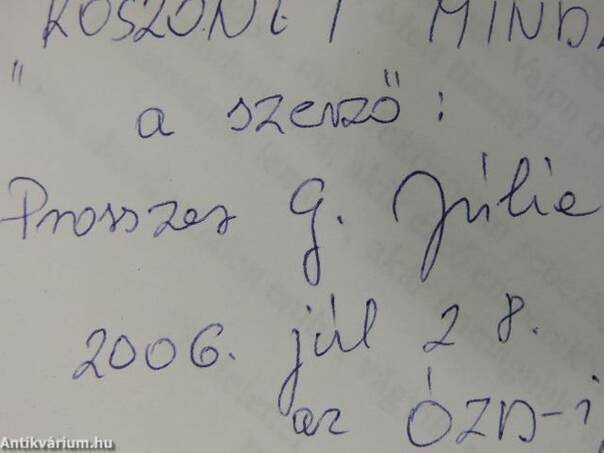 KÖSZÖNET MIND
"
a szerző":
Prosszer G. Júlia
2006. júl 28.
az ÓZD-i
Antikvárium.hu